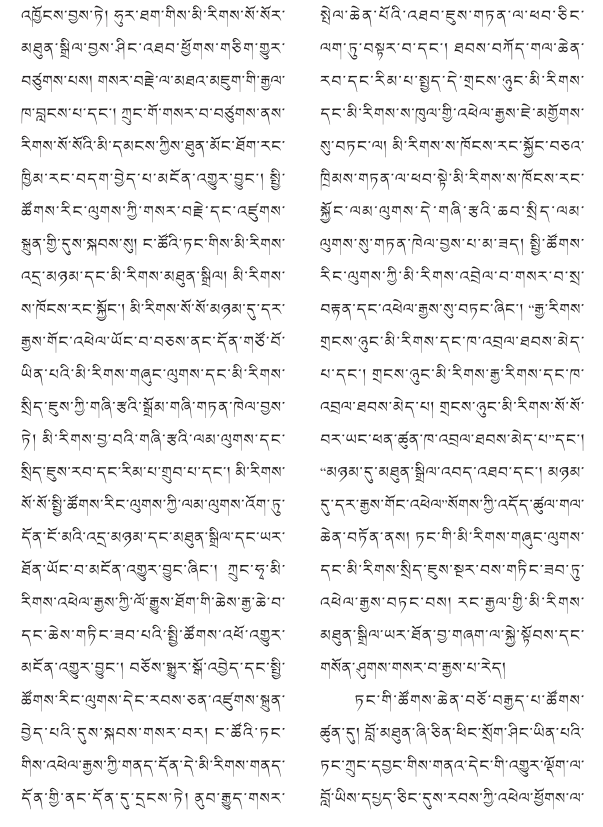 འཁྱོངས་བྱས་ཏེ། ཧུར་ཐག་གིས་མི་རིགས་སོ་སོར་
མཐུན་སྒྲིལ་བྱས་ཤིང་འཐབ་ཕྱོགས་གཅིག་གྱུར་
བཙུགས་པས། གསར་བརྗེ་ལ་མཐའ་མཇུག་གི་རྒྱལ་
ཁ་བླངས་པ་དང་། ཀྲུང་གོ་གསར་བ་བཙུགས་ནས་
རིགས་སོ་སོའི་མི་དམངས་ཀྱིས་ཐུན་མོང་ཐོག་རང་
ཁྱིམ་རང་བདག་བྱེད་པ་མངོན་འགྱུར་བྱུང་། སྤྱི་
ཚོགས་རིང་ལུགས་ཀྱི་གསར་བརྗེ་དང་འཛུགས་
སྐྲུན་གྱི་དུས་སྐབས་སུ། ང་ཚོའི་ཏང་གིས་མི་རིགས་
འདྲ་མཉམ་དང་མི་རིགས་མཐུན་སྒྲིལ། མི་རིགས་
ས་ཁོངས་རང་སྐྱོང་། མི་རིགས་སོ་སོ་མཉམ་དུ་དར་
རྒྱས་གོང་འཕེལ་ཡོང་བ་བཅས་ནང་དོན་གཙོ་བོ་
ཡིན་པའི་མི་རིགས་གཞུང་ལུགས་དང་མི་རིགས་
སྲིད་ཇུས་ཀྱི་གཞི་རྩའི་སྒྲོམ་གཞི་གཏན་ཁེལ་བྱས་
ཏེ། མི་རིགས་བྱ་བའི་གཞི་རྩའི་ལམ་ལུགས་དང་
སྲིད་ཇུས་རབ་དང་རིམ་པ་གྲུབ་པ་དང་། མི་རིགས་
སོ་སོ་སྤྱི་ཚོགས་རིང་ལུགས་ཀྱི་ལམ་ལུགས་འོག་ཏུ་
དོན་ངོ་མའི་འདྲ་མཉམ་དང་མཐུན་སྒྲིལ་དང་ཡར་
ཐོན་ཡོང་བ་མངོན་འགྱུར་བྱུང་ཞིང་། ཀྲུང་ཧྭ་མི་
རིགས་འཕེལ་རྒྱས་ཀྱི་ལོ་རྒྱུས་ཐོག་གི་ཆེས་རྒྱ་ཆེ་བ་
དང་ཆེས་གཏིང་ཟབ་པའི་སྤྱི་ཚོགས་འཕོ་འགྱུར་
མངོན་འགྱུར་བྱུང་། བཅོས་སྒྱུར་སྒོ་འབྱེད་དང་སྤྱི་
ཚོགས་རིང་ལུགས་དེང་རབས་ཅན་འཛུགས་སྐྲུན་
བྱེད་པའི་དུས་སྐབས་གསར་བར། ང་ཚོའི་ཏང་
གིས་འཕེལ་རྒྱས་ཀྱི་གནད་དོན་དེ་མི་རིགས་གནད་
དོན་གྱི་ནང་དོན་དུ་དྲངས་ཏེ། ནུབ་རྒྱུད་གསར་
སྤེལ་ཆེན་པོའི་འཐབ་ཇུས་གཏན་ལ་ཕབ་ཅིང་
ལག་ཏུ་བསྟར་བ་དང་། ཐབས་བཀོད་གལ་ཆེན་
རབ་དང་རིམ་པ་སྤྱད་དེ་གྲངས་ཉུང་མི་རིགས་
དང་མི་རིགས་ས་ཁུལ་གྱི་འཕེལ་རྒྱས་ཇེ་མགྱོགས་
སུ་བཏང་ལ། མི་རིགས་ས་ཁོངས་རང་སྐྱོང་བཅའ་
ཁྲིམས་གཏན་ལ་ཕབ་སྟེ་མི་རིགས་ས་ཁོངས་རང་
སྐྱོང་ལམ་ལུགས་དེ་གཞི་རྩའི་ཆབ་སྲིད་ལམ་
ལུགས་སུ་གཏན་ཁེལ་བྱས་པ་མ་ཟད། སྤྱི་ཚོགས་
རིང་ལུགས་ཀྱི་མི་རིགས་འབྲེལ་བ་གསར་བ་སྲ་
བརྟན་དང་འཕེལ་རྒྱས་སུ་བཏང་ཞིང་། “རྒྱ་རིགས་
གྲངས་ཉུང་མི་རིགས་དང་ཁ་འབྲལ་ཐབས་མེད་
པ་དང་། གྲངས་ཉུང་མི་རིགས་རྒྱ་རིགས་དང་ཁ་
འབྲལ་ཐབས་མེད་པ། གྲངས་ཉུང་མི་རིགས་སོ་སོ་
བར་ཡང་ཕན་ཚུན་ཁ་འབྲལ་ཐབས་མེད་པ”དང་།
“མཉམ་དུ་མཐུན་སྒྲིལ་འབད་འཐབ་དང་། མཉམ་
དུ་དར་རྒྱས་གོང་འཕེལ”སོགས་ཀྱི་འདོད་ཚུལ་གལ་
ཆེན་བཏོན་ནས། ཏང་གི་མི་རིགས་གཞུང་ལུགས་
དང་མི་རིགས་སྲིད་ཇུས་སྔར་བས་གཏིང་ཟབ་ཏུ་
འཕེལ་རྒྱས་བཏང་བས། རང་རྒྱལ་གྱི་མི་རིགས་
མཐུན་སྒྲིལ་ཡར་ཐོན་བྱ་གཞག་ལ་སྐྱེ་སྟོབས་དང་
གསོན་ཤུགས་གསར་བ་རྒྱས་པ་རེད།
ཏང་གི་ཚོགས་ཆེན་བཅོ་བརྒྱད་པ་ཚོགས་
ཚུན་དུ། བློ་མཐུན་ཞི་ཅིན་ཕིང་སྲོག་ཤིང་ཡིན་པའི་
ཏང་ཀྲུང་དབྱང་གིས་གནའ་དེང་གི་འགྱུར་ལྡོག་ལ་
བློ་ཡིས་དཔྱད་ཅིང་དུས་རབས་ཀྱི་འཕེལ་ཕྱོགས་ལ་